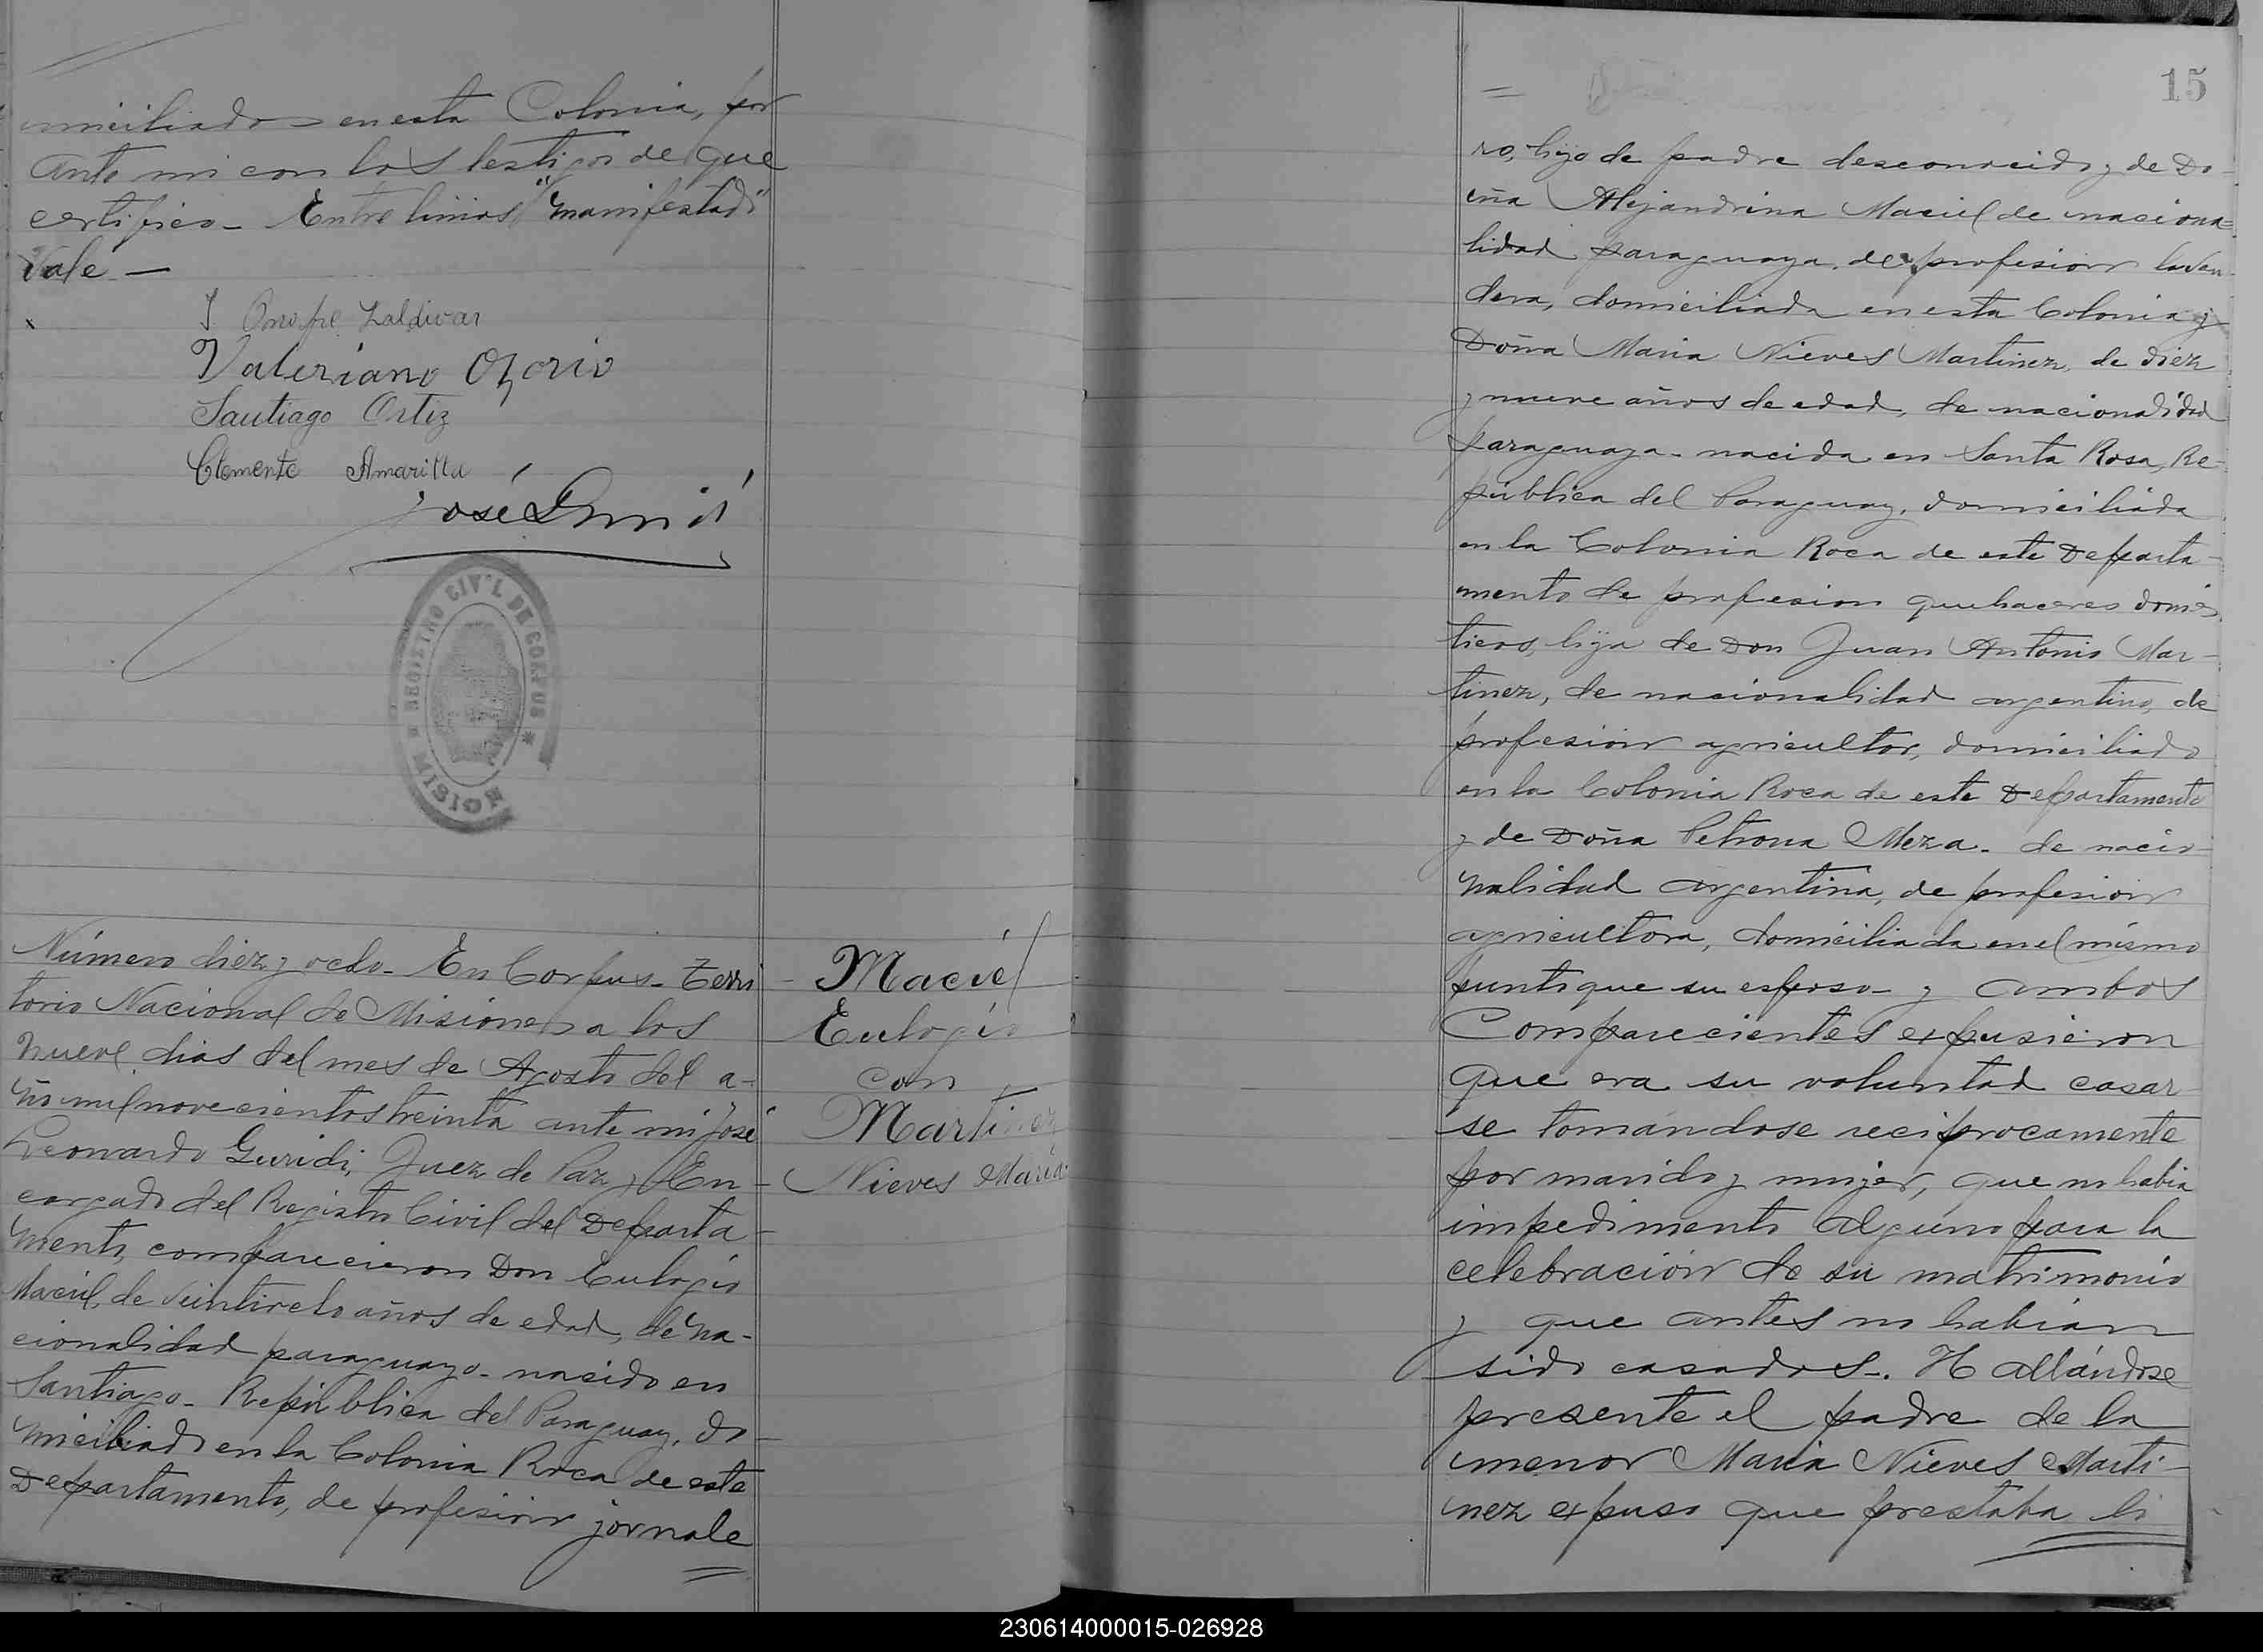 miciliado en esta Colonia, por
ante mi con los testigos de que
certifico - Entre linias "manifestado"
Vale -
J Onofre Zaldivar
Valeriano Ozorio
Santiago Ortiz
Clemente Amarilla
José Guridi
REGISTRO CIVIL DE CORPUS
* MISIONES *
Número diez y ocho - En Corpus - Terri
torio Nacional de Misiones a los
nueve dias del mes de Agosto del a-
ño mil novecientos treinta ante mi José
Leonardo Guridi, Juez de Paz y En-
cargado del Registro Civil del Departa-
mento, comparecieron Don Eulogio
Maciel, de veintiocho años de edad, de na-
cionalidad paraguayo - nacido en
Santiago - República del Paraguay, do-
miciliado en la Colonia Roca de este
Departamento, de profesion jornale
Maciel
Eulogio
con
Martinez
Nieves María
15
ro, hijo de padre desconocido y de Do-
ña Alejandrina Maciel de naciona-
lidad paraguaya, de profesion lavan-
dera, domiciliada en esta Colonia y
Doña Maria Nieves Martinez, de diez
y nueve años de edad, de nacionalidad
paraguaya - nacida en Santa Rosa, Re-
pública del Paraguay, domiciliada
en la Colonia Roca de este Departa-
mento de profesion quehaceres domés
ticos, hija de Don Juan Antonio Mar-
tinez, de nacionalidad argentino, de
profesión agricultor, domiciliado
en la Colonia Roca de este Departamento
y de Doña Petrona Meza - de nacio-
nalidad argentina, de profesion
agricultora, domiciliada en el mismo
punto que su esposo - y ambos
Comparecientes expusieron
que era su voluntad casar-
se tomándose reciprocamente
por marido y mujer, que no habia
impedimento alguno para la
celebración de su matrimonio
y que antes no habian
sido casados -. Hallándose
presente el padre de la
menor Maria Nieves Marti-
nez expuso que prestaba li
230614000015-026928